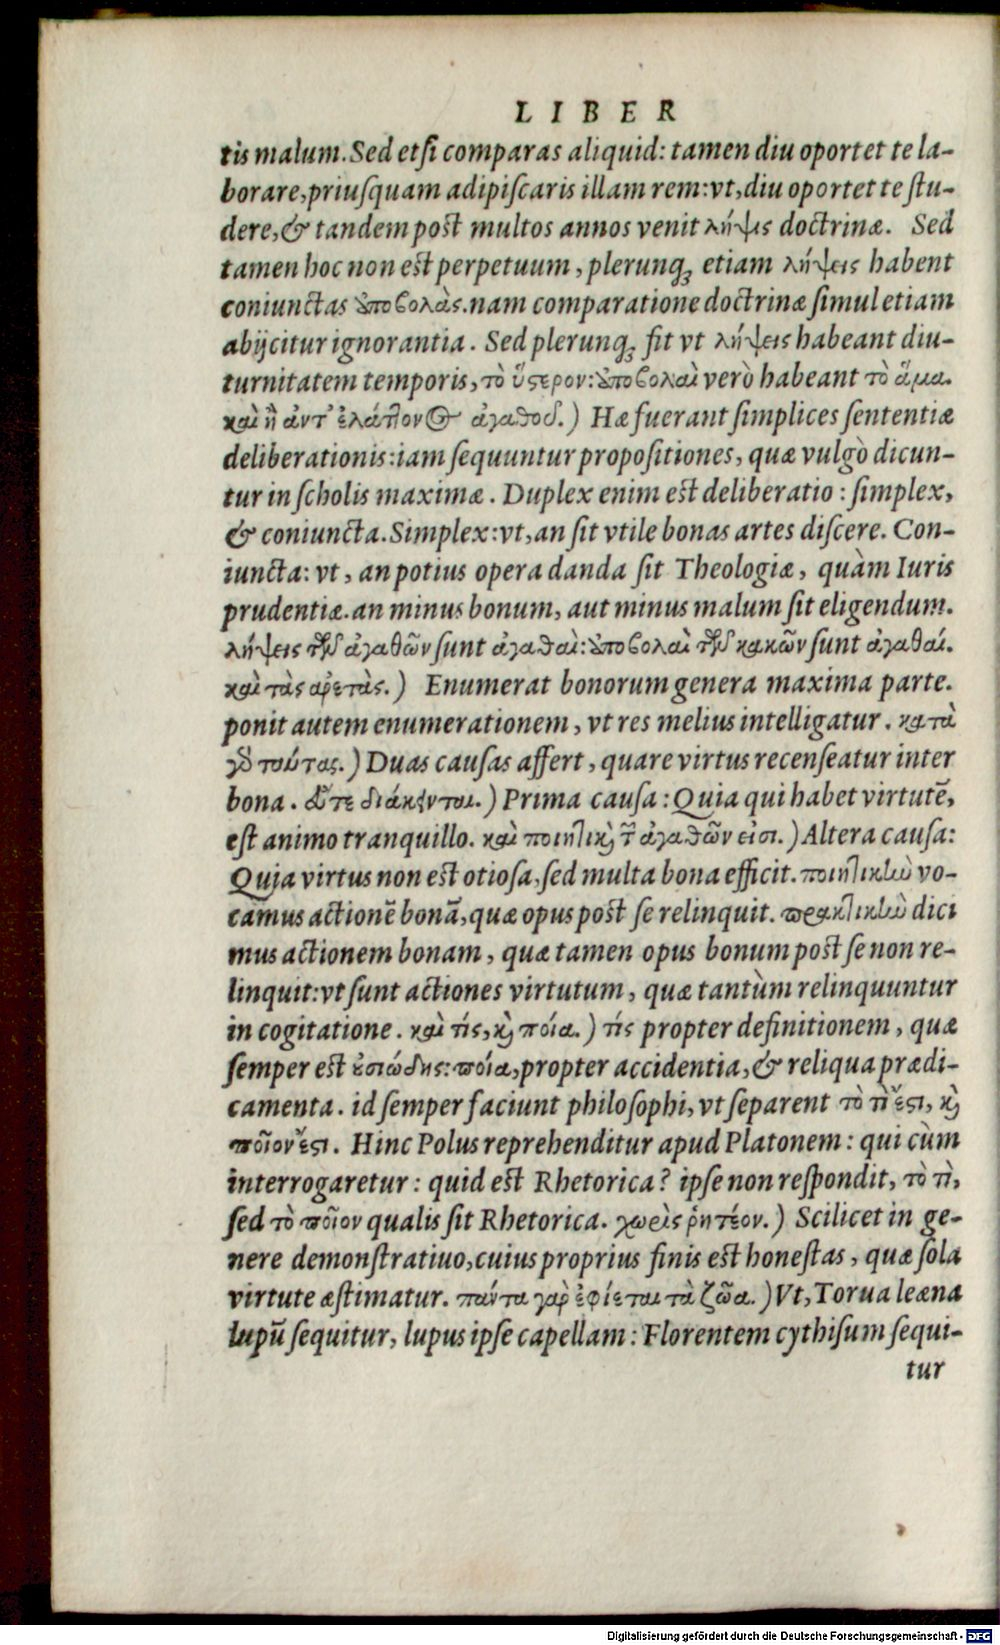 LIBER
tis malum. Sed etsi comparas aliquid: tamen diu oportet te la-
borare, priusquam adipiscaris illam rem: vt, diu oportet te stu-
dere, & tandem post multos annos venit λήψις doctrinæ. Sed
tamen hoc non est perpetuum, plerunqꝫ etiam λήψεις habent
coniunctas ὑποβολὰς. nam comparatione doctrinæ simul etiam
abijcitur ignorantia. Sed plerunqꝫ fit vt λήψεις habeant diu-
turnitatem temporis, τὸ ὕστερον: ὑποβολαὶ verò habeant τὸ ἅμα.
καὶ ἡ ἀντ’ ἐλάττονος ἀγαθοῦ.) Hæ fuerant simplices sententiæ
deliberationis: iam sequuntur propositiones, quæ vulgò dicun-
tur in scholis maximæ. Duplex enim est deliberatio: simplex,
& coniuncta. Simplex: vt, an sit vtile bonas artes discere. Con-
iuncta: vt, an potius opera danda sit Theologiæ, quàm Iuris
prudentiæ. an minus bonum, aut minus malum sit eligendum.
λήψεις τῶν ἀγαθῶν sunt ἀγαθαὶ: ὑποβολαὶ τῶν κακῶν sunt ἀγαθαί.
καὶ τὰς ἀρετὰς.) Enumerat bonorum genera maxima parte.
ponit autem enumerationem, vt res melius intelligatur. κατὰ
γὸ τούτας.) Duas causas affert, quare virtus recenseatur inter
bona. εὖτε διάκεινται.) Prima causa: Quia qui habet virtutē,
est animo tranquillo. καὶ ποιητικὶ τῶν ἀγαθῶν εἰσι.) Altera causa:
Quia virtus non est otiosa, sed multa bona efficit. ποιητικὴν vo-
camus actionē bonā, quæ opus post se relinquit. πρακτικὴν dici
mus actionem bonam, quæ tamen opus bonum post se non re-
linquit: vt sunt actiones virtutum, quæ tantùm relinquuntur
in cogitatione. καὶ τίς, καὶ ποία.) τίς propter definitionem, quæ
semper est ἐσιώδης: ποία, propter accidentia, & reliqua prædi-
camenta. id semper faciunt philosophi, vt separent τὸ τὶ ἔστι, καὶ
ποῖον ἔστι. Hinc Polus reprehenditur apud Platonem: qui cùm
interrogaretur: quid est Rhetorica? ipse non respondit, τὸ τὶ,
sed τὸ ποῖον qualis sit Rhetorica. χωρὶς ῥητέον.) Scilicet in ge-
nere demonstratiuo, cuius proprius finis est honestas, quæ sola
virtute æstimatur. πάντα γὰρ ἐφίεται τὰ ζῶα.) Vt, Torua leæna
lupū sequitur, lupus ipse capellam: Florentem cythisum sequi-
tur
Digitalisierung gefördert durch die Deutsche Forschungsgemeinschaft - DFG